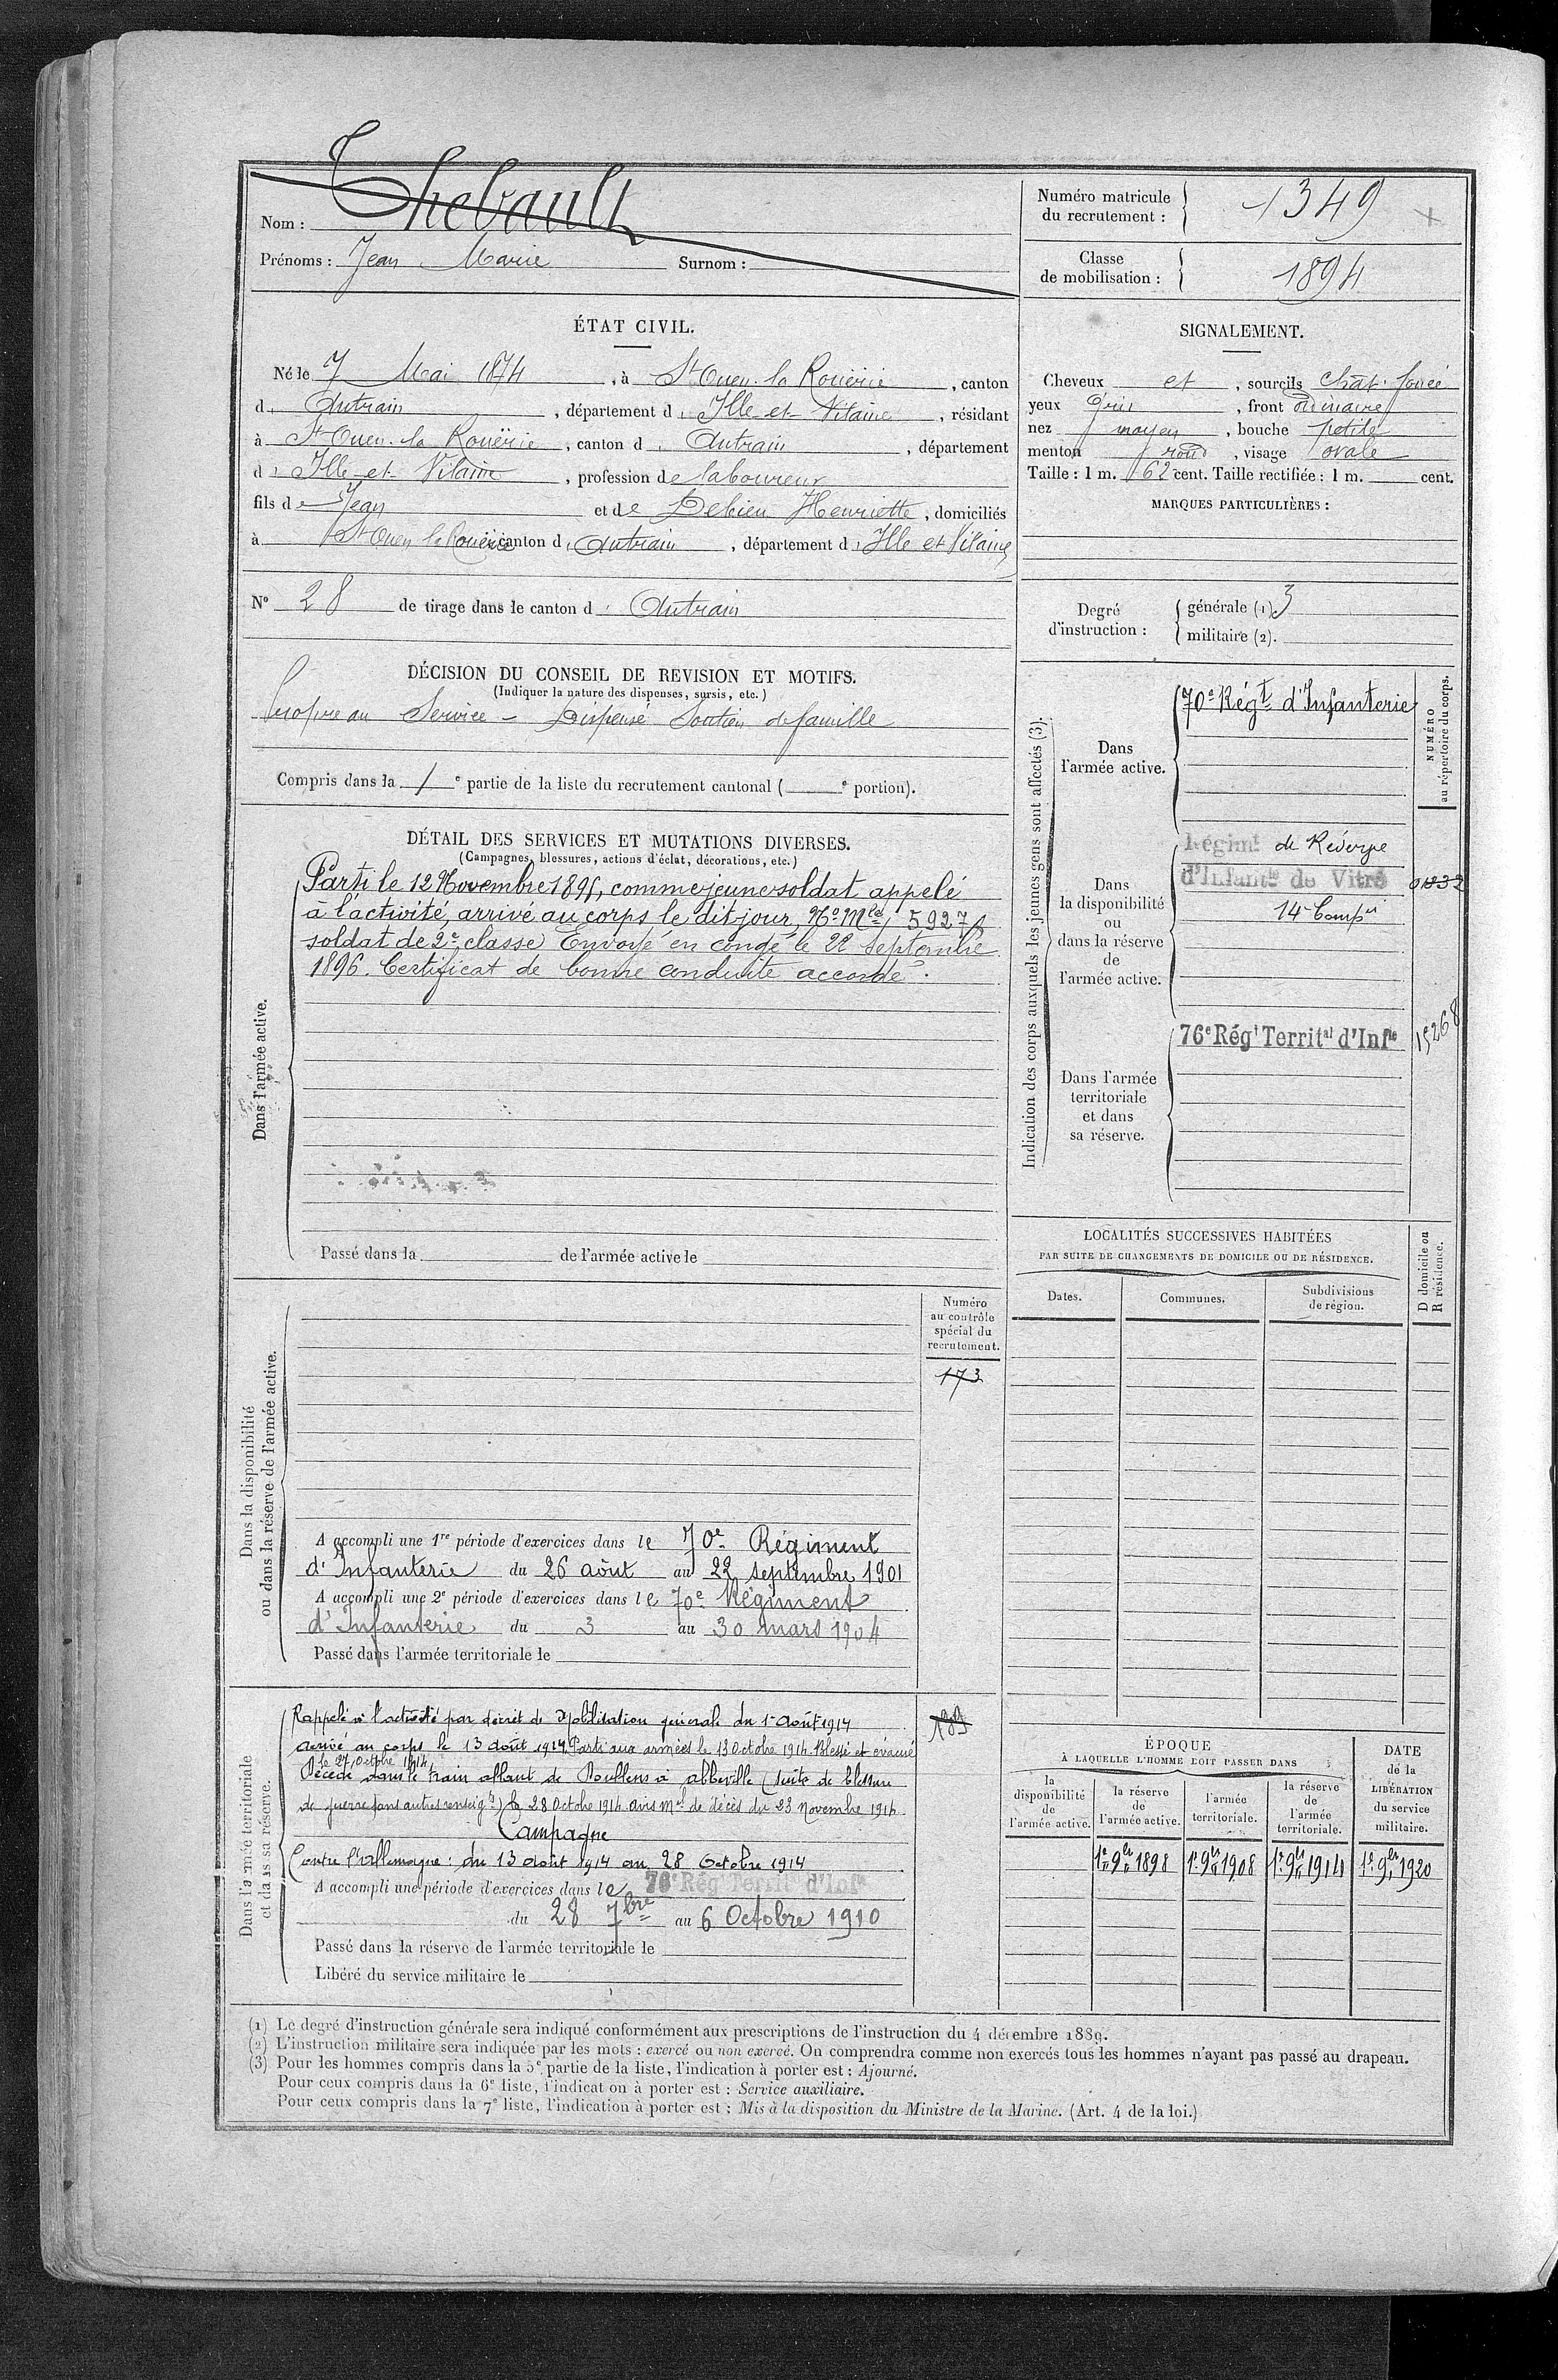 Nom : Thebault
Prénoms : Jean Marie Surnom :
Numéro matricule du recrutement : 1349
Classe de mobilisation : 1894
ÉTAT CIVIL.
Né le 7 Mai 1874, à St Ouen la Rouërie, canton
d' Antrain, département d' Ille-et-Vilaine, résidant
à St Ouen-la Rouërie, canton d' Antrain, département
d' Ille-et-Vilaine, profession de laboureur
fils de Jean et de Debieu Henriette, domiciliés
à St Ouen la Rouërie canton d' Antrain, département d' Ille et Vilaine
N° 28 de tirage dans le canton d' Antrain
SIGNALEMENT.
Cheveux et, sourcils chât. foncé
yeux gris, front ordinaire
nez moyen, bouche petite
menton rond, visage ovale
Taille : 1 m. 62 cent. Taille rectifiée : 1 m. cent.
MARQUES PARTICULIÈRES :
Degré d'instruction : générale (1). 3
militaire (2).
DÉCISION DU CONSEIL DE REVISION ET MOTIFS.
(Indiquer la nature des dispenses, sursis, etc.)
Propre au Service - Dispensé Soutien de famille
Compris dans la 1 e partie de la liste du recrutement cantonal ( e portion).
DÉTAIL DES SERVICES ET MUTATIONS DIVERSES.
(Campagnes, blessures, actions d'éclat, décorations, etc.)
Dans l'armée active.
Parti le 12 Novembre 1895, comme jeune soldat appelé
à l'activité, arrivé au corps le dit jour, No Mle 5927
soldat de 2e classe Envoyé en congé le 22 septembre
1896. Certificat de bonne conduite accordé.
Passé dans la de l'armée active le
Indication des corps auxquels les jeunes gens sont affectés (3).
NUMÉRO au répertoire du corps.
Dans l'armée active.
70e Régt d'Infanterie
Dans la disponibilité ou dans la réserve de l'armée active.
Régimt de Réserve
d'Infantie de Vitré 01832
14e Compie
Dans l'armée territoriale et dans sa réserve.
76e Régt Territal d'Infie 15268
LOCALITÉS SUCCESSIVES HABITÉES
PAR SUITE DE CHANGEMENTS DE DOMICILE OU DE RÉSIDENCE.
Dates. Communes. Subdivisions de région.
D domicile ou R résidence.
Dans la disponibilité ou dans la réserve de l'armée active.
Numéro au contrôle spécial du recrutement.
173
A accompli une 1re période d'exercices dans le 70e Régiment
d'Infanterie du 26 août au 22 septembre 1901
A accompli une 2e période d'exercices dans le 70e Régiment
d'Infanterie du 3 au 30 mars 1904
Passé dans l'armée territoriale le
Dans l'armée territoriale et dans sa réserve.
Rappelé à l'activité par décret de Mobilisation générale du 1er Août 1914
arrivé au corps le 13 août 1914. Parti aux armées le 13 Octobre 1914. Blessé et évacué
le 27 Octobre 1914.
Décédé dans le train allant de Doullens à Abbeville (suite de blessure
de guerre sans autres renseigts) le 28 Octobre 1914. avis Mel de décès du 23 Novembre 1914.
Campagne
Contre l'Allemagne : du 13 août 1914 au 28 Octobre 1914
A accompli une période d'exercices dans le 76e Régt Territal d'Infie
du 28 7bre au 6 Octobre 1910
Passé dans la réserve de l'armée territoriale le
Libéré du service militaire le
ÉPOQUE
À LAQUELLE L'HOMME DOIT PASSER DANS
la disponibilité de l'armée active.
la réserve de l'armée active.
l'armée territoriale.
la réserve de l'armée territoriale.
DATE de la LIBÉRATION du service militaire.
1er 9bre 1898 1er 9bre 1908 1er 9bre 1914 1er 9bre 1920
(1) Le degré d'instruction générale sera indiqué conformément aux prescriptions de l'instruction du 4 décembre 1889.
(2) L'instruction militaire sera indiquée par les mots : exercé ou non exercé. On comprendra comme non exercés tous les hommes n'ayant pas passé au drapeau.
(3) Pour les hommes compris dans la 5e partie de la liste, l'indication à porter est : Ajourné.
Pour ceux compris dans la 6e liste, l'indication à porter est : Service auxiliaire.
Pour ceux compris dans la 7e liste, l'indication à porter est : Mis à la disposition du Ministre de la Marine. (Art. 4 de la loi.)